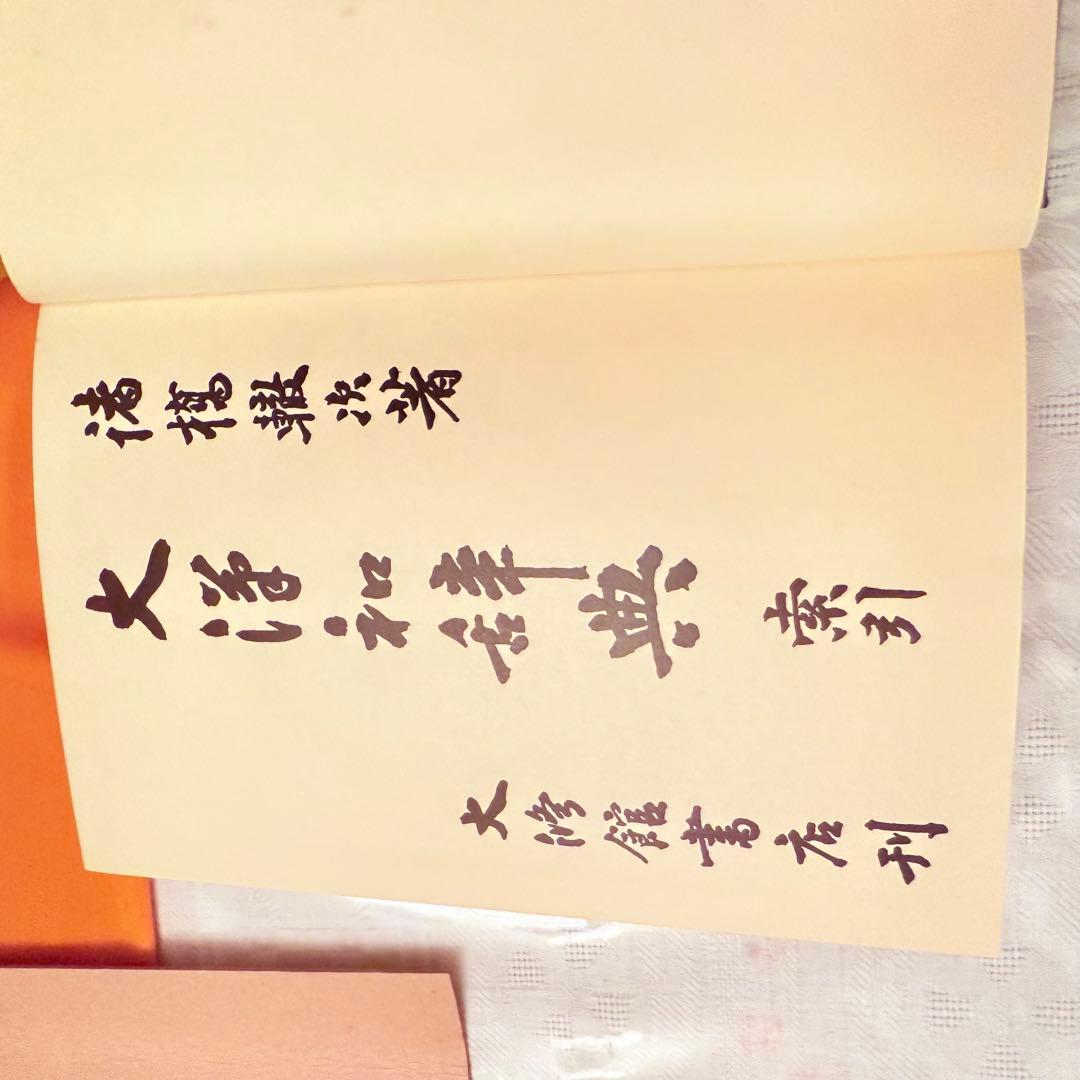 諸橋轍次著
大漢和辞典 索引
大修館書店刊